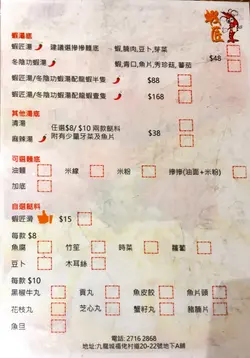 蝦匠
蝦湯底
蝦匠湯 建議選摻摻麵底 - 蝦,腩肉,豆卜,芽菜
冬陰功蝦湯 - 蝦,青口,魚片,秀珍菇,蕃茄
$48
蝦匠湯/冬陰功蝦湯配龍蝦半隻 $88
蝦匠湯/冬陰功蝦湯配龍蝦壹隻 $168
其他湯底
清湯
麻辣湯
任選$8/ $10 兩款餸料
附有少量牙菜及魚片
$38
可選麵底
油麵 米線 米粉 摻摻(油面+米粉)
加底
自選餸料
蝦匠滑 $15
每款 $8
魚腐 竹笙 時菜 蘿蔔
豆卜 木耳絲
每款 $10
黑椒牛丸 貢丸 魚皮餃 魚片頭
花枝丸 芝心丸 蟹籽丸 豬腩片
魚旦
電話: 2716 2868
地址:九龍城福佬村道20-22號地下A舖